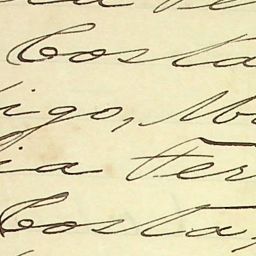 Costa
igo, Ma
ia Fer
Costa,